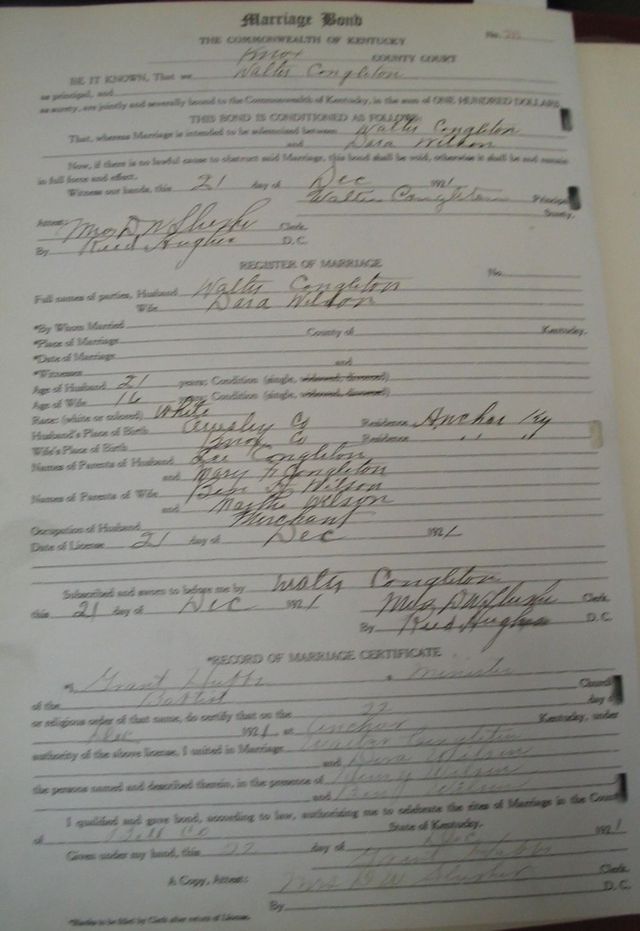 Marriage Bond
No.
THE COMMONWEALTH OF KENTUCKY
Knox COUNTY COURT
BE IT KNOWN, That we Walter Congleton
as principal, and
as surety, are jointly and severally bound to the Commonwealth of Kentucky, in the sum of ONE HUNDRED DOLLARS.
THIS BOND IS CONDITIONED AS FOLLOWS:
That, whereas Marriage is intended to be solemnized between Walter Congleton
and Dara Wilson
Now, if there is no lawful cause to obstruct said Marriage, this bond shall be void, otherwise it shall be and remain
in full force and effect.
Witness our hands, this 21 day of Dec 1921
Walter Congleton Principal
Surety.
Attest: Mrs D W Clerk.
By Reed Hughes D. C.
REGISTER OF MARRIAGE
No.
Full names of parties, Husband Walter Congleton
Wife Dara Wilson
*By Whom Married
*Place of Marriage County of Kentucky.
*Date of Marriage
*Witnesses and
Age of Husband 21 years; Condition (single, widowed, divorced)
Age of Wife 16 years; Condition (single, widowed, divorced)
Race: (white or colored) White
Husband's Place of Birth Owsley Co Residence Anchor Ky
Wife's Place of Birth Knox Co Residence " " "
Names of Parents of Husband Congleton
and Mary Congleton
Names of Parents of Wife Wilson
and Wilson
Occupation of Husband Merchant
Date of License 21 day of Dec 1921
Subscribed and sworn to before me by Walter Congleton
this 21 day of Dec 1921 Mrs D W Clerk.
By Reed Hughes D. C.
*RECORD OF MARRIAGE CERTIFICATE
*I, Grant a Minister
of the Baptist Church
or religious order of that name, do certify that on the 22 day of
Dec 1921 at Anchor Kentucky, under
authority of the above license, I united in Marriage Walter Congleton
and Dara Wilson
the persons named and described therein, in the presence of Henry Wilson
and Wilson
I qualified and gave bond, according to law, authorizing me to celebrate the rites of Marriage in the County
of Bell Co State of Kentucky.
Given under my hand, this 22 day of Dec 1921
Grant
A Copy, Attest: Mrs D W Clerk.
By D. C.
*Blanks to be filled by Clerk after return of License.